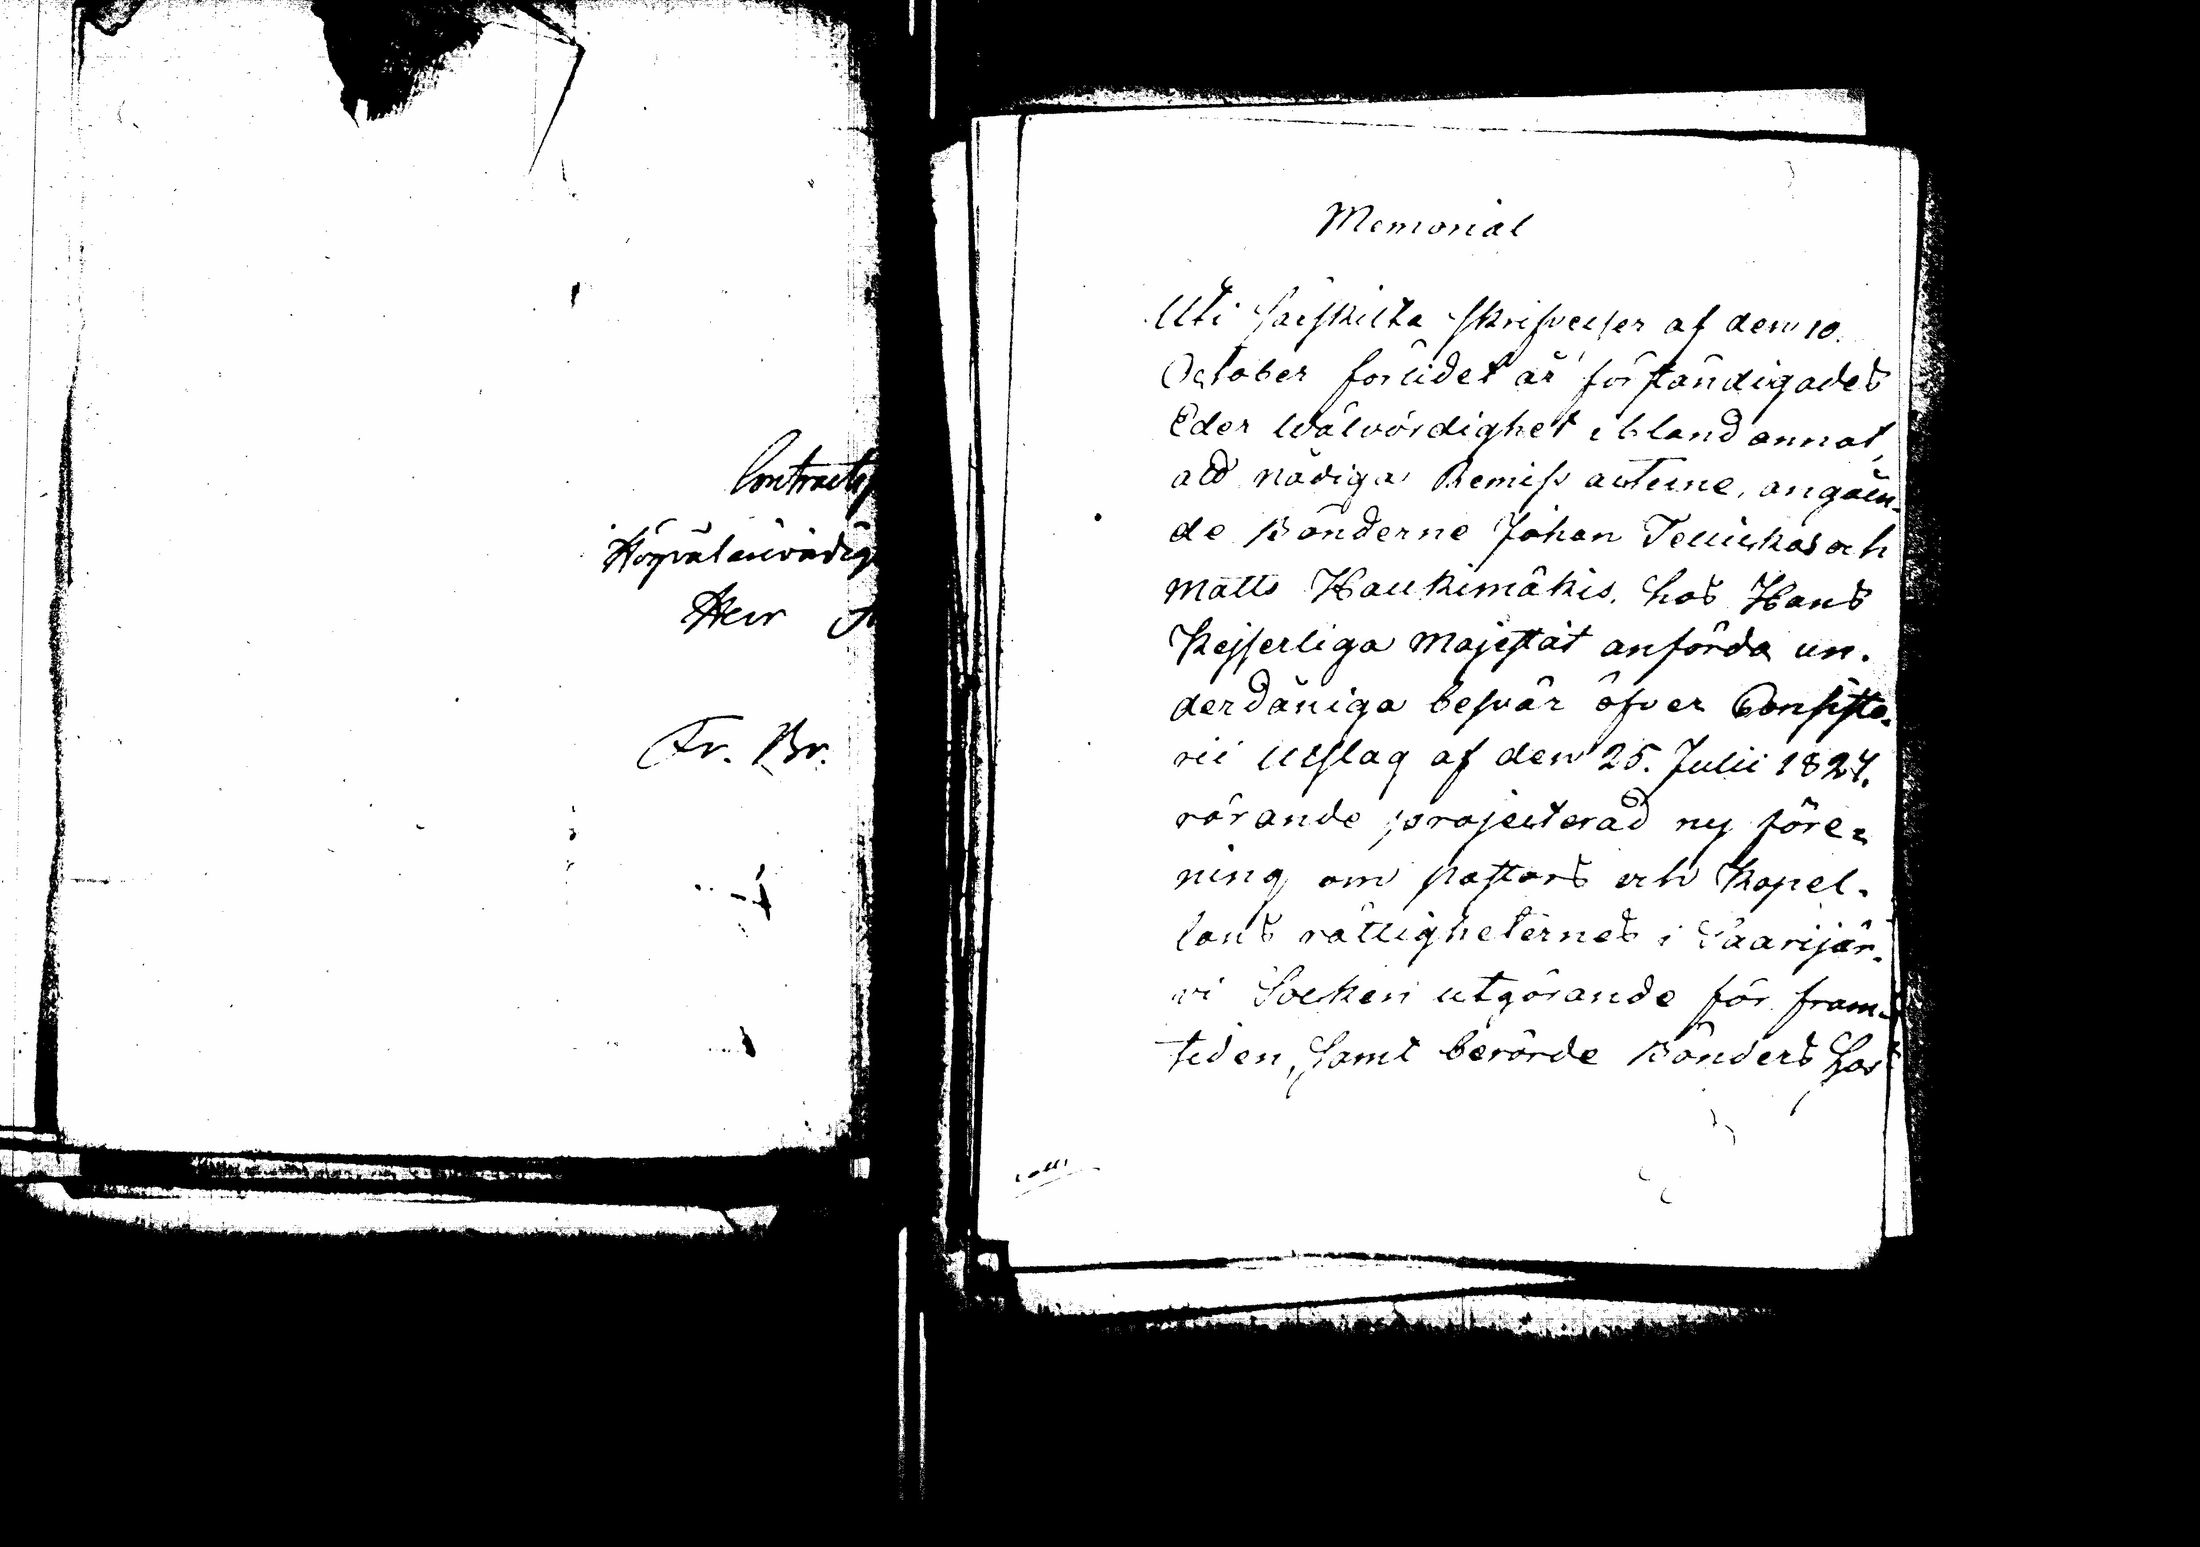 Contracts
Högvälärevördig
Herr
Fr. Br.
Memorial
Uti särskilta skrifvelser af den 10.
October förlidet år förständigades
Eder Wälvördighet ibland annat,
att nådiga Remiss acterne, angåen-
de Bönderne Johan och
Matts Haukimäkis, hos Hans
Kejserliga Majestät anförda un-
derdåniga besvär öfver Consisto-
rii Utslag af den 25. Julii 1827.
rörande projecterad ny före-
ning om Pastors och Kapel-
lans rättigheternes i Saarijär-
vi Socken utgörande för fram-
tiden, samt berörde Bönders hos